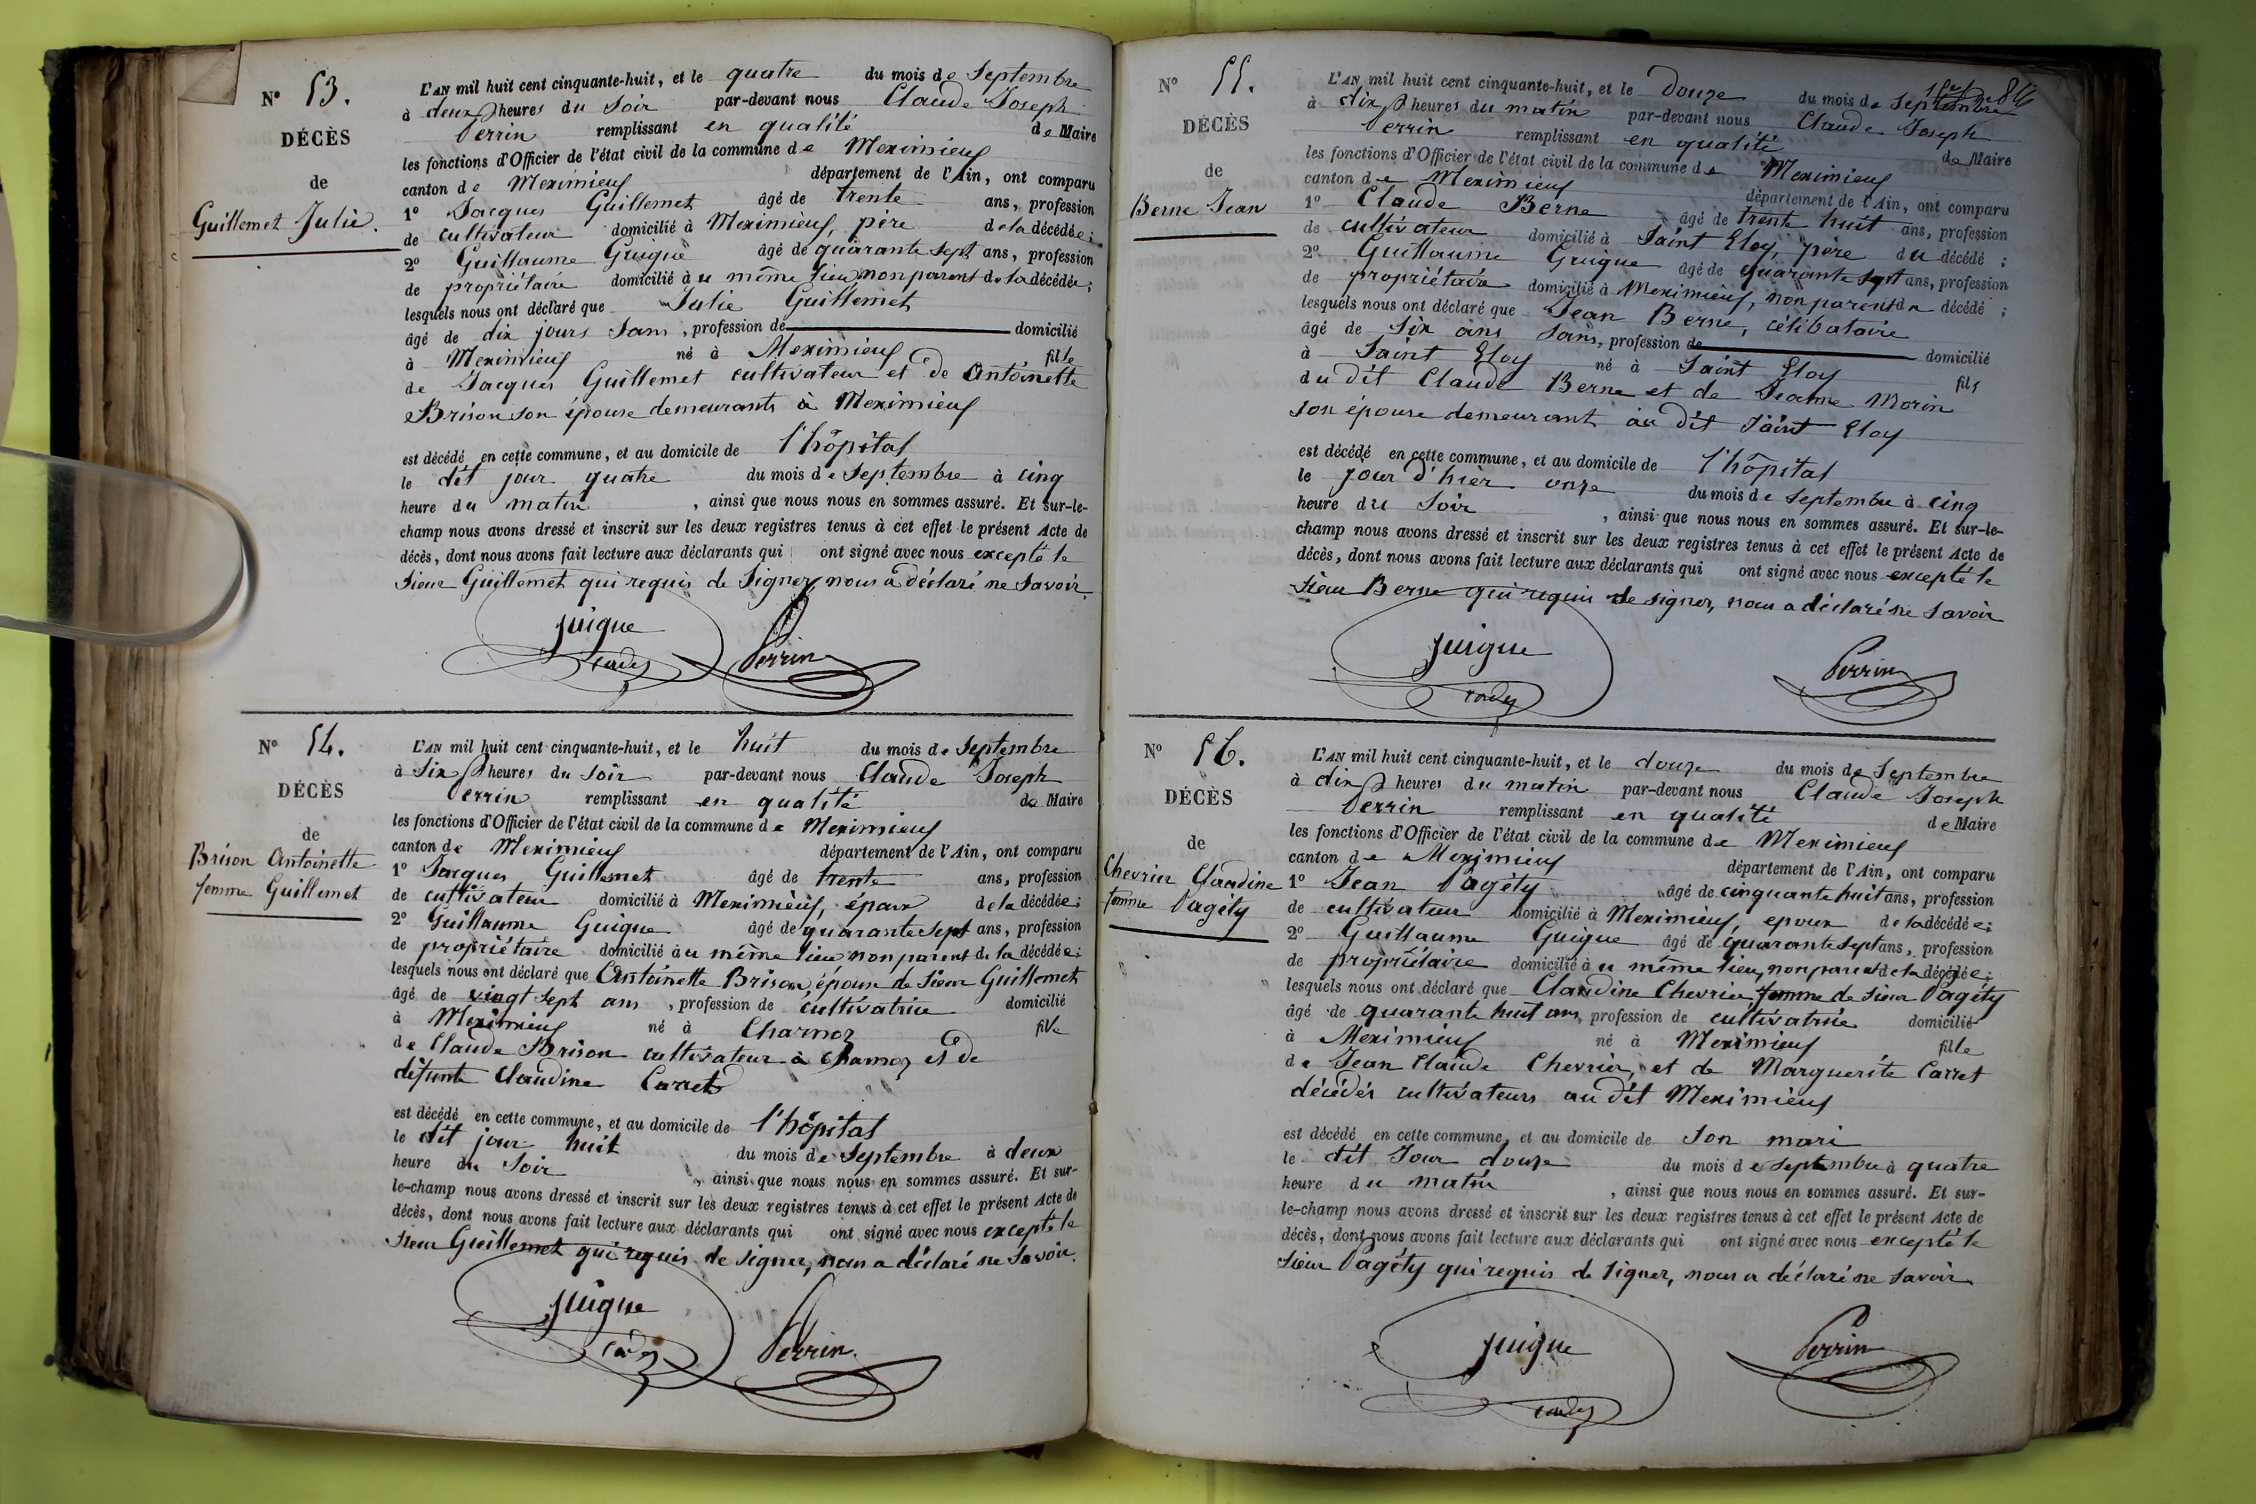 N° 53.
DÉCÈS
de
Guillemet Julie.
L'AN mil huit cent cinquante-huit, et le quatre du mois de Septembre
à deux heures du Soir par-devant nous Claude Joseph
Perrin remplissant en qualité de Maire
les fonctions d'Officier de l'état civil de la commune de Meximieux
canton de Meximieux département de l'Ain, ont comparu
1° Jacques Guillemet âgé de trente ans, profession
de cultivateur domicilié à Meximieux, père de la décédée;
2° Guillaume Guigue âgé de quarante sept ans, profession
de propriétaire domicilié au même lieu non parent de la décédée;
lesquels nous ont déclaré que Julie Guillemet
âgé de dix jours Sans, profession de domicilié
à Meximieux né à Meximieux fille
de Jacques Guillemet cultivateur et de Antoinette
Brison son épouse demeurants à Meximieux
est décédé en cette commune, et au domicile de l'hôpital
le dit jour quatre du mois de Septembre à cinq
heure du matin, ainsi que nous nous en sommes assuré. Et sur-le-
champ nous avons dressé et inscrit sur les deux registres tenus à cet effet le présent Acte de
décès, dont nous avons fait lecture aux déclarants qui ont signé avec nous excepté le
Sieur Guillemet qui requis de Signer, nous a déclaré ne Savoir.
guigue
Perrin
N° 54.
DÉCÈS
de
Brison Antoinette
femme Guillemet
L'AN mil huit cent cinquante-huit, et le huit du mois de Septembre
à Six heures du soir par-devant nous Claude Joseph
Perrin remplissant en qualité de Maire
les fonctions d'Officier de l'état civil de la commune de Meximieux
canton de Meximieux département de l'Ain, ont comparu
1° Jacques Guillemet âgé de trente ans, profession
de cultivateur domicilié à Meximieux, époux de la décédée;
2° Guillaume Guigue âgé de quarante sept ans, profession
de propriétaire domicilié au même lieu non parent de la décédée;
lesquels nous ont déclaré que Antoinette Brison, épouse de Sieur Guillemet
âgé de vingt sept ans, profession de cultivatrice domicilié
à Meximieux né à Charnoz fille
de Claude Brison cultivateur à Charnoz et de
défunte Claudine Carret
est décédé en cette commune, et au domicile de l'hôpital
le dit jour huit du mois de Septembre à deux
heure du Soir, ainsi que nous nous en sommes assuré. Et sur-
le-champ nous avons dressé et inscrit sur les deux registres tenus à cet effet le présent Acte de
décès, dont nous avons fait lecture aux déclarants qui ont signé avec nous excepté le
Sieur Guillemet qui requis de signer, nous a déclaré ne Savoir.
guigue
Perrin.
N° 55.
DÉCÈS
de
Berne Jean
L'AN mil huit cent cinquante-huit, et le Douze du mois de Septembre
à dix heures du matin par-devant nous Claude Joseph
Perrin remplissant en qualité de Maire
les fonctions d'Officier de l'état civil de la commune de Meximieux
canton de Meximieux département de l'Ain, ont comparu
1° Claude Berne âgé de trente huit ans, profession
de cultivateur domicilié à Saint Eloy, père du décédé;
2° Guillaume Guigue âgé de quarante sept ans, profession
de propriétaire domicilié à Meximieux, non parent du décédé;
lesquels nous ont déclaré que Jean Berne, célibataire
âgé de six ans Sans, profession de domicilié
à Saint Eloy né à Saint Eloy fils
du dit Claude Berne et de Jeanne Morin
son épouse demeurant au dit Saint Eloy
est décédé en cette commune, et au domicile de l'hôpital
le jour d'hier onze du mois de Septembre à cinq
heure du Soir, ainsi que nous nous en sommes assuré. Et sur-le-
champ nous avons dressé et inscrit sur les deux registres tenus à cet effet le présent Acte de
décès, dont nous avons fait lecture aux déclarants qui ont signé avec nous excepté le
Sieur Berne qui requis de signer, nous a déclaré ne Savoir
guigue
Perrin
N° 56.
DÉCÈS
de
Chevrier Claudine
femme Pagéty
L'AN mil huit cent cinquante-huit, et le douze du mois de Septembre
à dix heures du matin par-devant nous Claude Joseph
Perrin remplissant en qualité de Maire
les fonctions d'Officier de l'état civil de la commune de Meximieux
canton de Meximieux département de l'Ain, ont comparu
1° Jean Pagéty âgé de cinquante huit ans, profession
de cultivateur domicilié à Meximieux, epoux de la décédée;
2° Guillaume Guigue âgé de quarante sept ans, profession
de propriétaire domicilié au même lieu, non parent de la décédée;
lesquels nous ont déclaré que Claudine Chevrier, femme de Sieur Pagéty
âgé de quarante huit ans, profession de cultivatrice domicilié
à Meximieux né à Meximieux fille
de Jean Claude Chevrier, et de Marguerite Carret
décédés cultivateurs au dit Meximieux
est décédé en cette commune, et au domicile de Son mari
le dit Jour douze du mois de Septembre à quatre
heure du matin, ainsi que nous nous en sommes assuré. Et sur-
le-champ nous avons dressé et inscrit sur les deux registres tenus à cet effet le présent Acte de
décès, dont nous avons fait lecture aux déclarants qui ont signé avec nous excepté le
Sieur Pagéty qui requis de signer, nous a déclaré ne savoir
guigue
Perrin